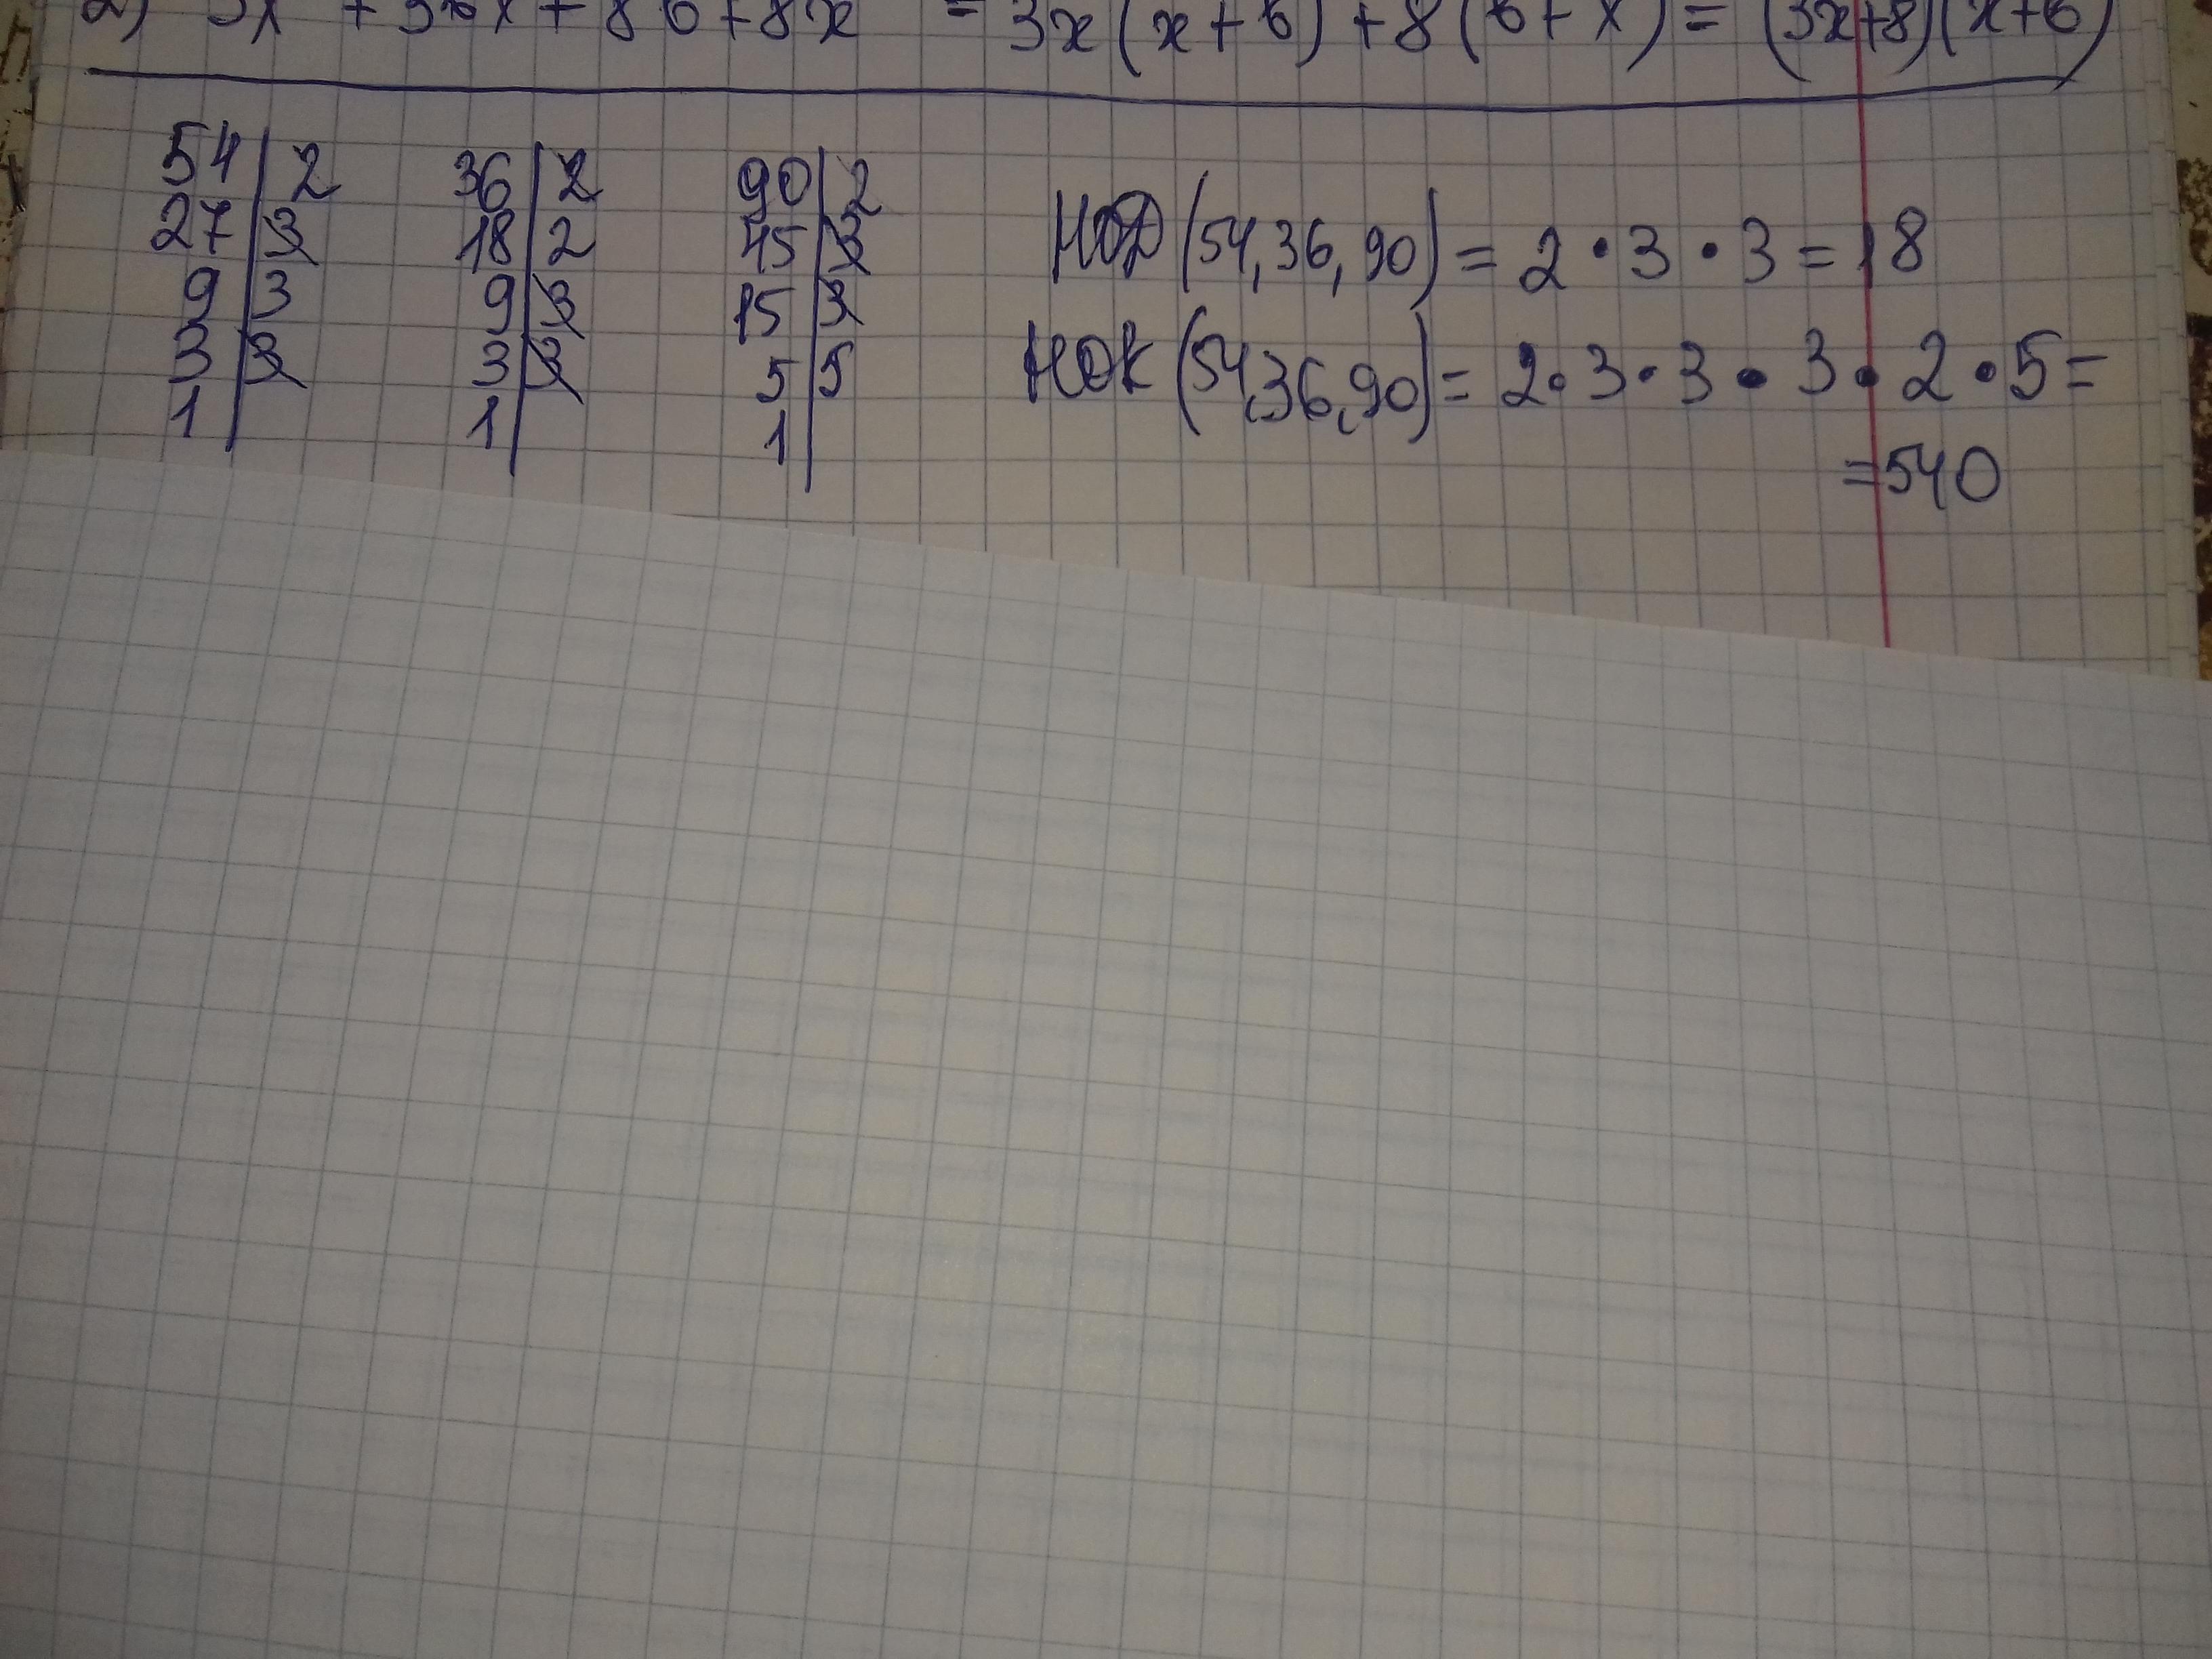 2) 3x + 3вx + 8в + 8x = 3x(x+в) + 8(в+x) = (3x+8)(x+в)
54 | 2
27 | 3
9 | 3
3 | 3
1
36 | 2
18 | 2
9 | 3
3 | 3
1
90 | 2
45 | 3
15 | 3
5 | 5
1
НОД (54, 36, 90) = 2 · 3 · 3 = 18
НОК (54, 36, 90) = 2 · 3 · 3 · 3 · 2 · 5 =
= 540